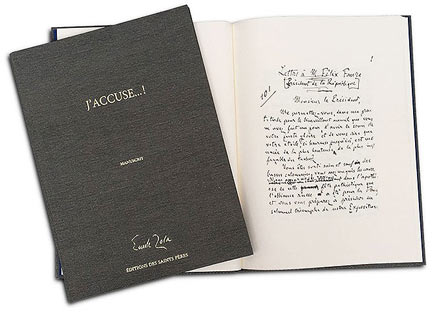 J'ACCUSE...!
MANUSCRIT
Émile Zola
ÉDITIONS DES SAINTS PÈRES
Lettre à M. Félix Faure
Président de la République
Monsieur le Président,
Me permettez-vous, dans ma gra-
titude pour le bienveillant accueil que vous
m'avez fait un jour, d'avoir le souci de
votre juste gloire et de vous dire que
votre étoile, si heureuse jusqu'ici, est me-
nacée de la plus honteuse, de la plus inef-
façable des taches?
Vous êtes sorti sain et sauf des
basses calomnies, vous avez conquis les cœurs.
dans l'apothé-
ose de cette fête patriotique que
l'alliance russe a été pour la
et vous vous préparez à présider au
solennel triomphe de notre Exposition